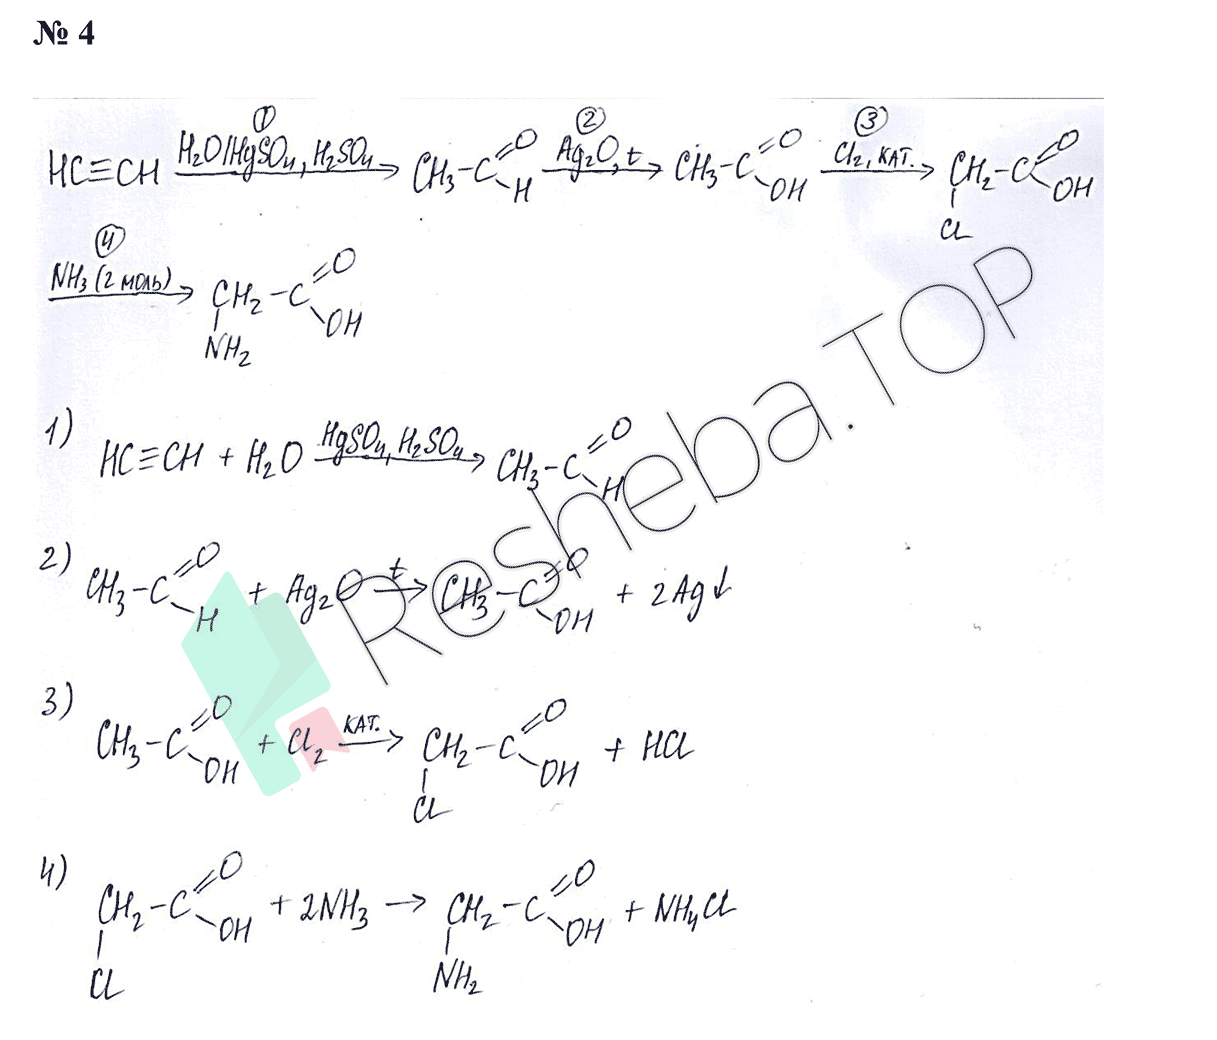 № 4
① ② ③
HC≡CH H₂O/HgSO₄, H₂SO₄ → CH₃-C=O -H Ag₂O, t → CH₃-C=O -OH Cl₂, КАТ. → CH₂-C=O -OH
Cl
④
NH₃ (2 моль) → CH₂-C=O -OH
NH₂
1) HC≡CH + H₂O HgSO₄, H₂SO₄ → CH₃-C=O -H
2) CH₃-C=O -H + Ag₂O t → CH₃-C=O -OH + 2Ag↓
3) CH₃-C=O -OH + Cl₂ КАТ. → CH₂-C=O -OH + HCl
Cl
4) CH₂-C=O -OH + 2NH₃ → CH₂-C=O -OH + NH₄Cl
Cl NH₂
Resheba.TOP